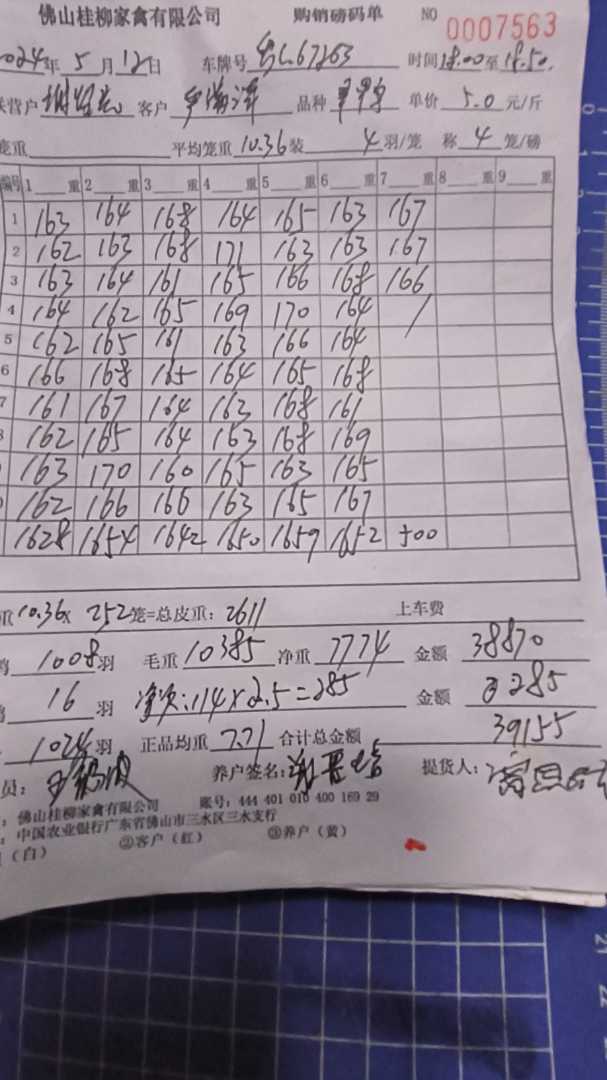 佛山桂柳家禽有限公司 购销磅码单 NO 0007563
2024年 5 月 12日 车牌号 67263 时间18:00至18:50
联营户 客户 品种 单价 5.0 元/斤
笼重 平均笼重 10.36 装 4 羽/笼 称 4 笼/磅
编号 1 重 2 重 3 重 4 重 5 重 6 重 7 重 8 重 9 重
1 163 164 168 164 165 163 167
2 162 163 168 171 163 163 167
3 163 164 161 165 166 168 166
4 164 162 165 169 170 164 /
5 162 165 161 163 166 164
6 166 168 165 164 165 168
7 161 167 164 163 168 161
8 162 165 164 163 168 169
163 170 160 165 163 165
162 166 166 163 165 167
1628 1654 1642 1650 1659 1652 500
重10.36x 252笼=总皮重: 2611 上车费
鸡 1008羽 毛重 10385 净重 7774 金额 38870
16 羽 :114×2.5=285 金额 285
1024羽 正品均重 7.71 合计总金额 39155
员: 养户签名: 提货人:
: 佛山桂柳家禽有限公司 账号: 444 401 010 400 169 29
: 中国农业银行广东省佛山市三水区三水支行
(白) ②客户(红) ③养户(黄)